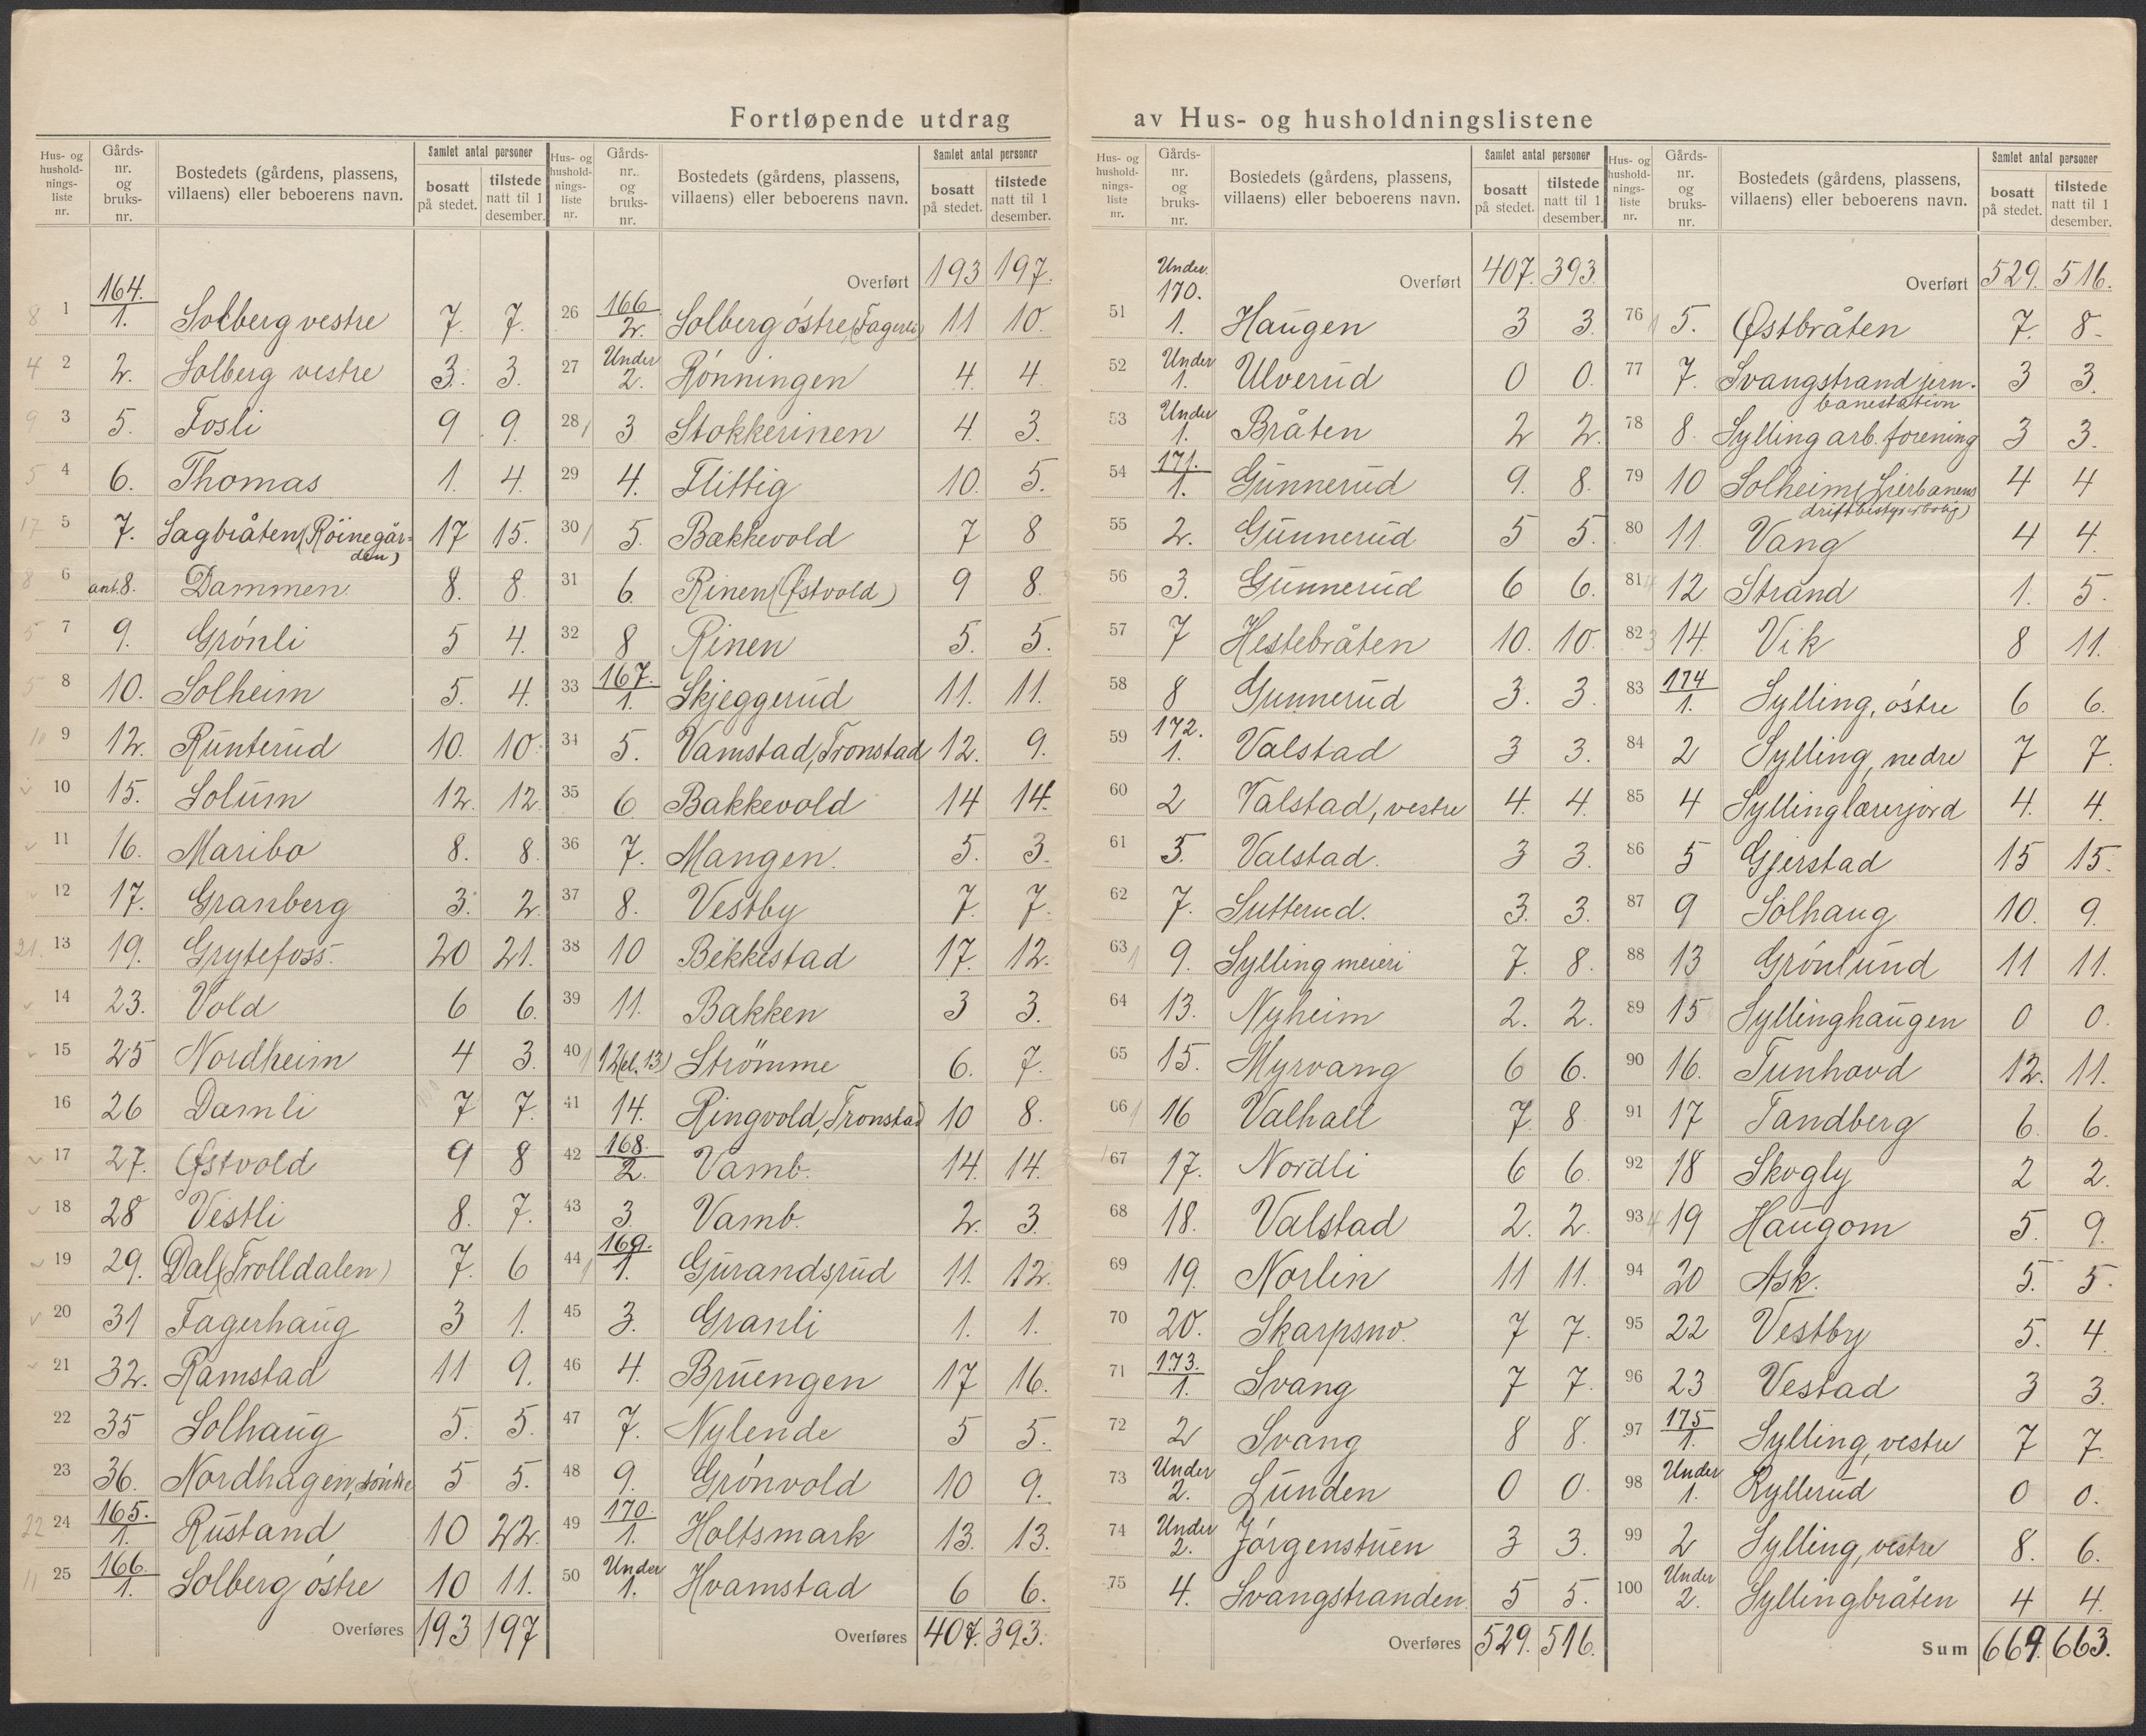 Fortløpende utdrag av Hus- og husholdningslistene
Hus- og husholdnings- liste nr. | Gårds- nr. og bruks- nr. | Bostedets (gårdens, plassens, villaens) eller beboerens navn. | Samlet antal personer bosatt på stedet. | tilstede natt til 1 desember.
1 164. 1. Solberg vestre 7. 7.
2 2. Solberg vestre 3. 3.
3 5. Fosli 9 9.
4 6. Thomas 1. 4.
5 7. Sagbråten (Röinegår-
den) 17 15.
6 ant. 8. Dammen 8. 8.
7 9. Grónli 5 4.
8 10. Solheim 5. 4.
9 12. Runterud 10. 10.
10 15. Solum 12. 12.
11 16. Maribo 8. 8.
12 17. Granberg 3. 2.
13 19. Grytefoss. 20 21.
14 23. Vold 6 6.
15 25 Nordheim 4 3.
16 26 Damli 7 7.
17 27. Østvold 9 8
18 28 Vestli 8. 7.
19 29. Dal (Trolldalen) 7. 6
20 31 Fagerhaug 3 1.
21 32. Ramstad 11 9.
22 35 Solhaug 5. 5.
23 36. Nordhagen, söndre 5 5.
24 165. 1. Rustand 10 22.
25 166. 1. Solberg óstre 10 11.
Overføres 193 197
Hus- og hushold- nings- liste nr. | Gårds- nr. og bruks- nr. | Bostedets (gårdens, plassens, villaens) eller beboerens navn. | Samlet antal personer bosatt på stedet. | tilstede natt til 1 desember.
Overført 193 197.
26 166 2. Solberg óstre, (Fagerli) 11 10.
27 Under 2. Rónningen 4. 4.
28 3 Stokkerinen 4. 3.
29 4. Flittig 10. 5.
30 5. Bakkevold 7 8
31 6. Rinen (Østvold) 9 8.
32 8 Rinen 5. 5.
33 167. 1. Skjeggerud 11. 11.
34 5. Vamstad, Tronstad 12. 9.
35 6 Bakkevold 14 14.
36 7. Mangen. 5. 3.
37 8. Vestby 7. 7.
38 10 Bekkestad 17. 12.
39 11. Bakken 3 3.
40 12 (el. 13) Strömme 6. 7.
41 14. Ringvold, Tronstad 10 8.
42 168. 2. Vamb. 14. 14.
43 3. Vamb. 2. 3
44 169. 1. Gurandsrud 11. 12.
45 3. Granli 1. 1.
46 4. Bruengen 17 16.
47 7. Nylende 5 5.
48 9. Grónvold 10 9.
49 170. 1. Holtsmark 13. 13.
50 Under 1. Hvamstad 6 6.
Overføres 407. 393.
Hus- og hushold- nings- liste nr. | Gårds- nr. og bruks- nr. | Bostedets (gårdens, plassens, villaens) eller beboerens navn. | Samlet antal personer bosatt på stedet. | tilstede natt til 1 desember.
Overført 407. 393.
51 Under 170. 1. Haugen 3 3.
52 Under 1. Ulverud 0 0.
53 Under 1. Bråten 2 2.
54 171. 1. Gunnerud 9. 8.
55 2. Gunnerud 5 5.
56 3. Gunnerud 6 6.
57 7 Hestebråten 10. 10.
58 8 Gunnerud 3. 3.
59 172. 1. Valstad 3 3.
60 2 Valstad, vestre 4. 4.
61 5. Valstad. 3 3.
62 7. Sutterud. 3. 3.
63 9. Sylling meieri 7. 8.
64 13. Nyheim 2. 2.
65 15. Myrvang 6 6.
66 16 Valhall 7. 8.
67 17. Nordli 6 6.
68 18. Valstad 2. 2.
69 19. Norlin 11 11.
70 20. Skarpsno. 7 7.
71 173. 1. Svang 7 7.
72 2 Svang 8 8.
73 Under 2. Lunden 0 0.
74 Under 2. Jórgenstuen 3 3.
75 4. Svangstranden 5 5.
Overføres 529. 516.
Hus- og hushold- nings- liste nr. | Gårds- nr. og bruks- nr. | Bostedets (gårdens, plassens, villaens) eller beboerens navn. | Samlet antal personer bosatt på stedet. | tilstede natt til 1 desember.
Overført 529. 516.
76 5. Østbråten 7. 8.
77 7. Svangstrand jern-
banestation 3 3.
78 8. Sylling arb. forening 3 3.
79 10 Solheim (Lierbanens
driftbestyrerbolig) 4 4
80 11. Vang 4 4.
81 12 Strand 1. 5.
82 14. Vik 8 11.
83 174 1. Sylling, óstre 6 6.
84 2 Sylling, nedre 7 7.
85 4 Syllinglærerjord 4. 4.
86 5 Gjerstad 15 15.
87 9 Solhaug 10. 9.
88 13 Grónlund 11 11.
89 15 Syllinghaugen 0 0.
90 16. Tunhovd 12. 11.
91 17 Tandberg 6. 6.
92 18 Skogly 2 2.
93 19 Haugom 5. 9.
94 20 Ask. 5. 5.
95 22 Vestby 5. 4.
96 23 Vestad 3 3.
97 175 1. Sylling, vestre 7 7.
98 Under 1. Ryllerud 0 0.
99 2 Sylling, vestre 8. 6.
100 Under 2. Syllingbråten 4 4.
Sum 669. 663.